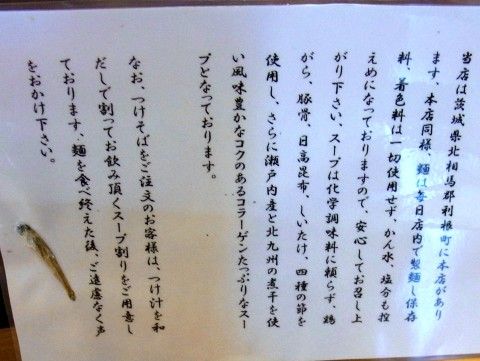 当店は茨城県北相馬郡利根町に本店があり
ます、本店同様、麺は毎日店内で製麺し保存
料、着色料は一切使用せず、かん水、塩分も控
えめになっておりますので、安心してお召し上
がり下さい、スープは化学調味料に頼らず、鶏
がら、豚骨、日高昆布、しいたけ、四種の節を
使用し、さらに瀬戸内産と北九州の煮干を使
い風味豊かなコクのあるコラーゲンたっぷりなスー
プとなっております。
なお、つけそばをご注文のお客様は、つけ汁を和
だしで割ってお飲み頂くスープ割りをご用意し
ております、麺を食べ終えた後、ご遠慮なく声
をおかけ下さい。